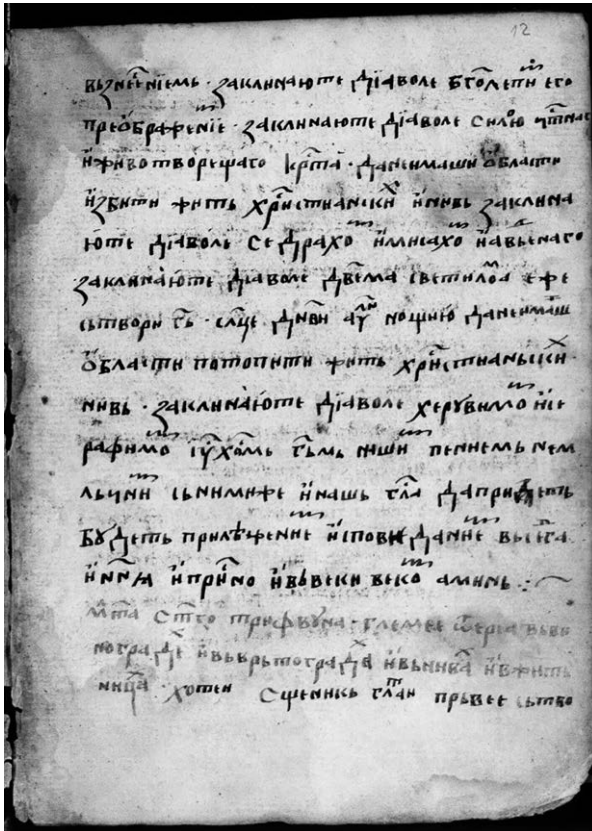 12
вьзнесенїемь · заклинаюте дїаволе бг҃олепни его
преѡбраженїе · заклинаюте дїаволе силою чⷭ҇тнаг
и животворещаго крⷭ҇та · да не имаши ѡбласти
избити жить хрⷭ҇тиански и нивь заклина
юте дїаволе седрахо и мисахо и авьенаго
заклинаюте дїаволе двѣма светилома еже
сьтвори гь · слн҃це дневи а лун нощию да не имаш
ѡбласти потопити жить хрⷭ҇тианьски
нивь · заклинаюте дїаволе херувимо и се
рафимо тьми пениемь нем
льчни сь нимиже и нашь гла да придеть
будеть прилѣжение исповѣдание вьсега
и нн҃ꙗ и при҃но и вь веки веко аминь :·
мл҃тва ст҃го трифѡуна · вьви
ногради и вьврьтогради и вьнива и вжить
ница · хотеи сщ҃еникь гл҃ати прьвее сьтво